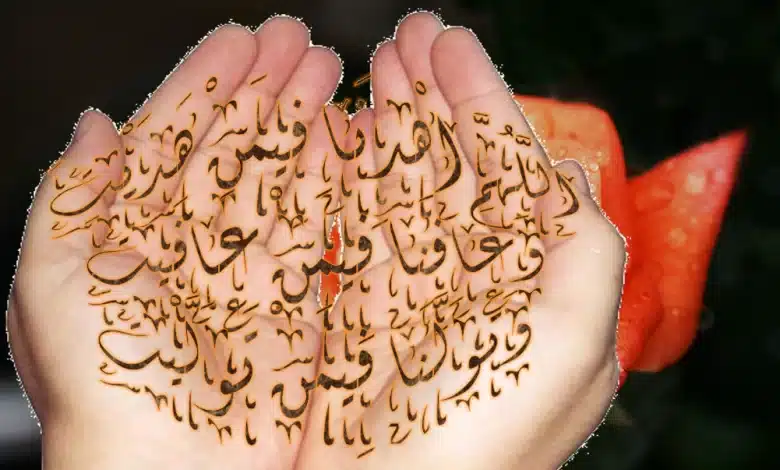 اللَّهُمَّ اهْدِنَا فِيمَنْ هَدَيْتَ
وَعَافِنَا فِيمَنْ عَافَيْتَ
وَتَوَلَّنَا فِيمَنْ تَوَلَّيْتَ